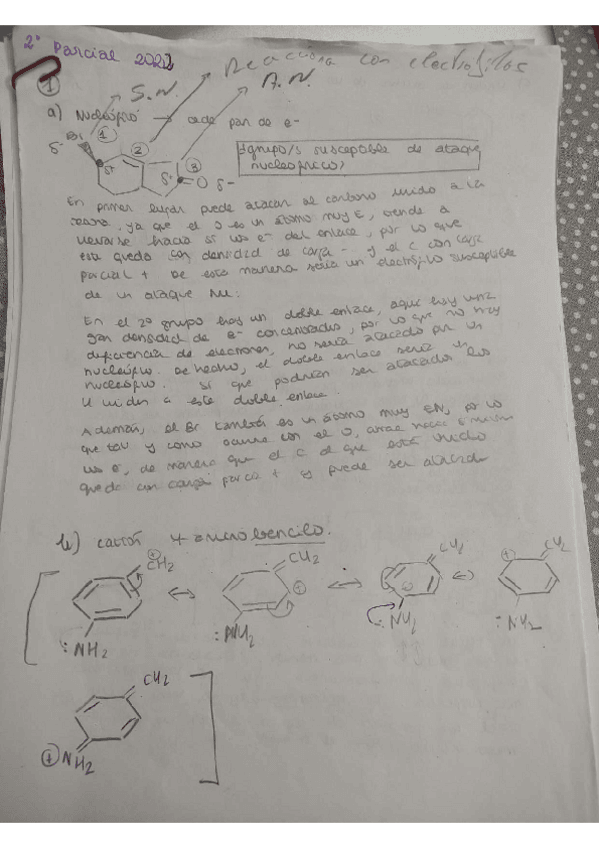 2º Parcial 2022
Reacciona con electrófilos
1
S.N.
A.N.
a) Nucleófilo → cede par de e-
¿grupo/s susceptible de ataque
nucleofílico?
Br
δ-
1
2
3
δ+
δ+
O δ-
En primer lugar puede atacar al carbono unido a la
ya que el O es un átomo muy E, tiende a
llevarse hacia sí los e- del enlace, por lo que
este queda con densidad de carga - y el C con carga
parcial + De esta manera sería un electrófilo susceptible
de un ataque Nu:
En el 2º grupo hay un doble enlace, aquí hay una
gran densidad de e- concentrados, por lo que no hay
deficiencia de electrones, no sería atacado por un
nucleófilo. De hecho, el doble enlace sería un
nucleófilo. Sí que podrían ser atacados los
H unidos a este doble enlace.
Además, el Br también es un átomo muy EN, por lo
que tal y como ocurre con el O, atrae hacia sí mismo
los e-, de manera que el C al que está unido
queda con carga parcial + y puede ser atacado
b) catión 4-aminobencilo.
+
CH2
CH2
CH2
CH2
+
+
+
:NH2
:NH2
:NH2
:NH2
CH2
+
NH2